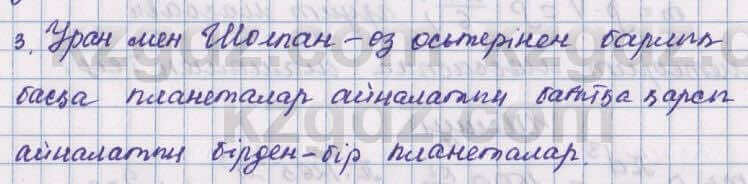 3. Уран мен Шолпан – өз осьтерінен барлық
басқа планеталар айналатын бағытқа қарсы
айналатын бірден-бір планеталар.
kzgdz.com